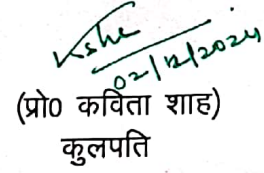 02/12/2024
(प्रो0 कविता शाह)
कुलपति